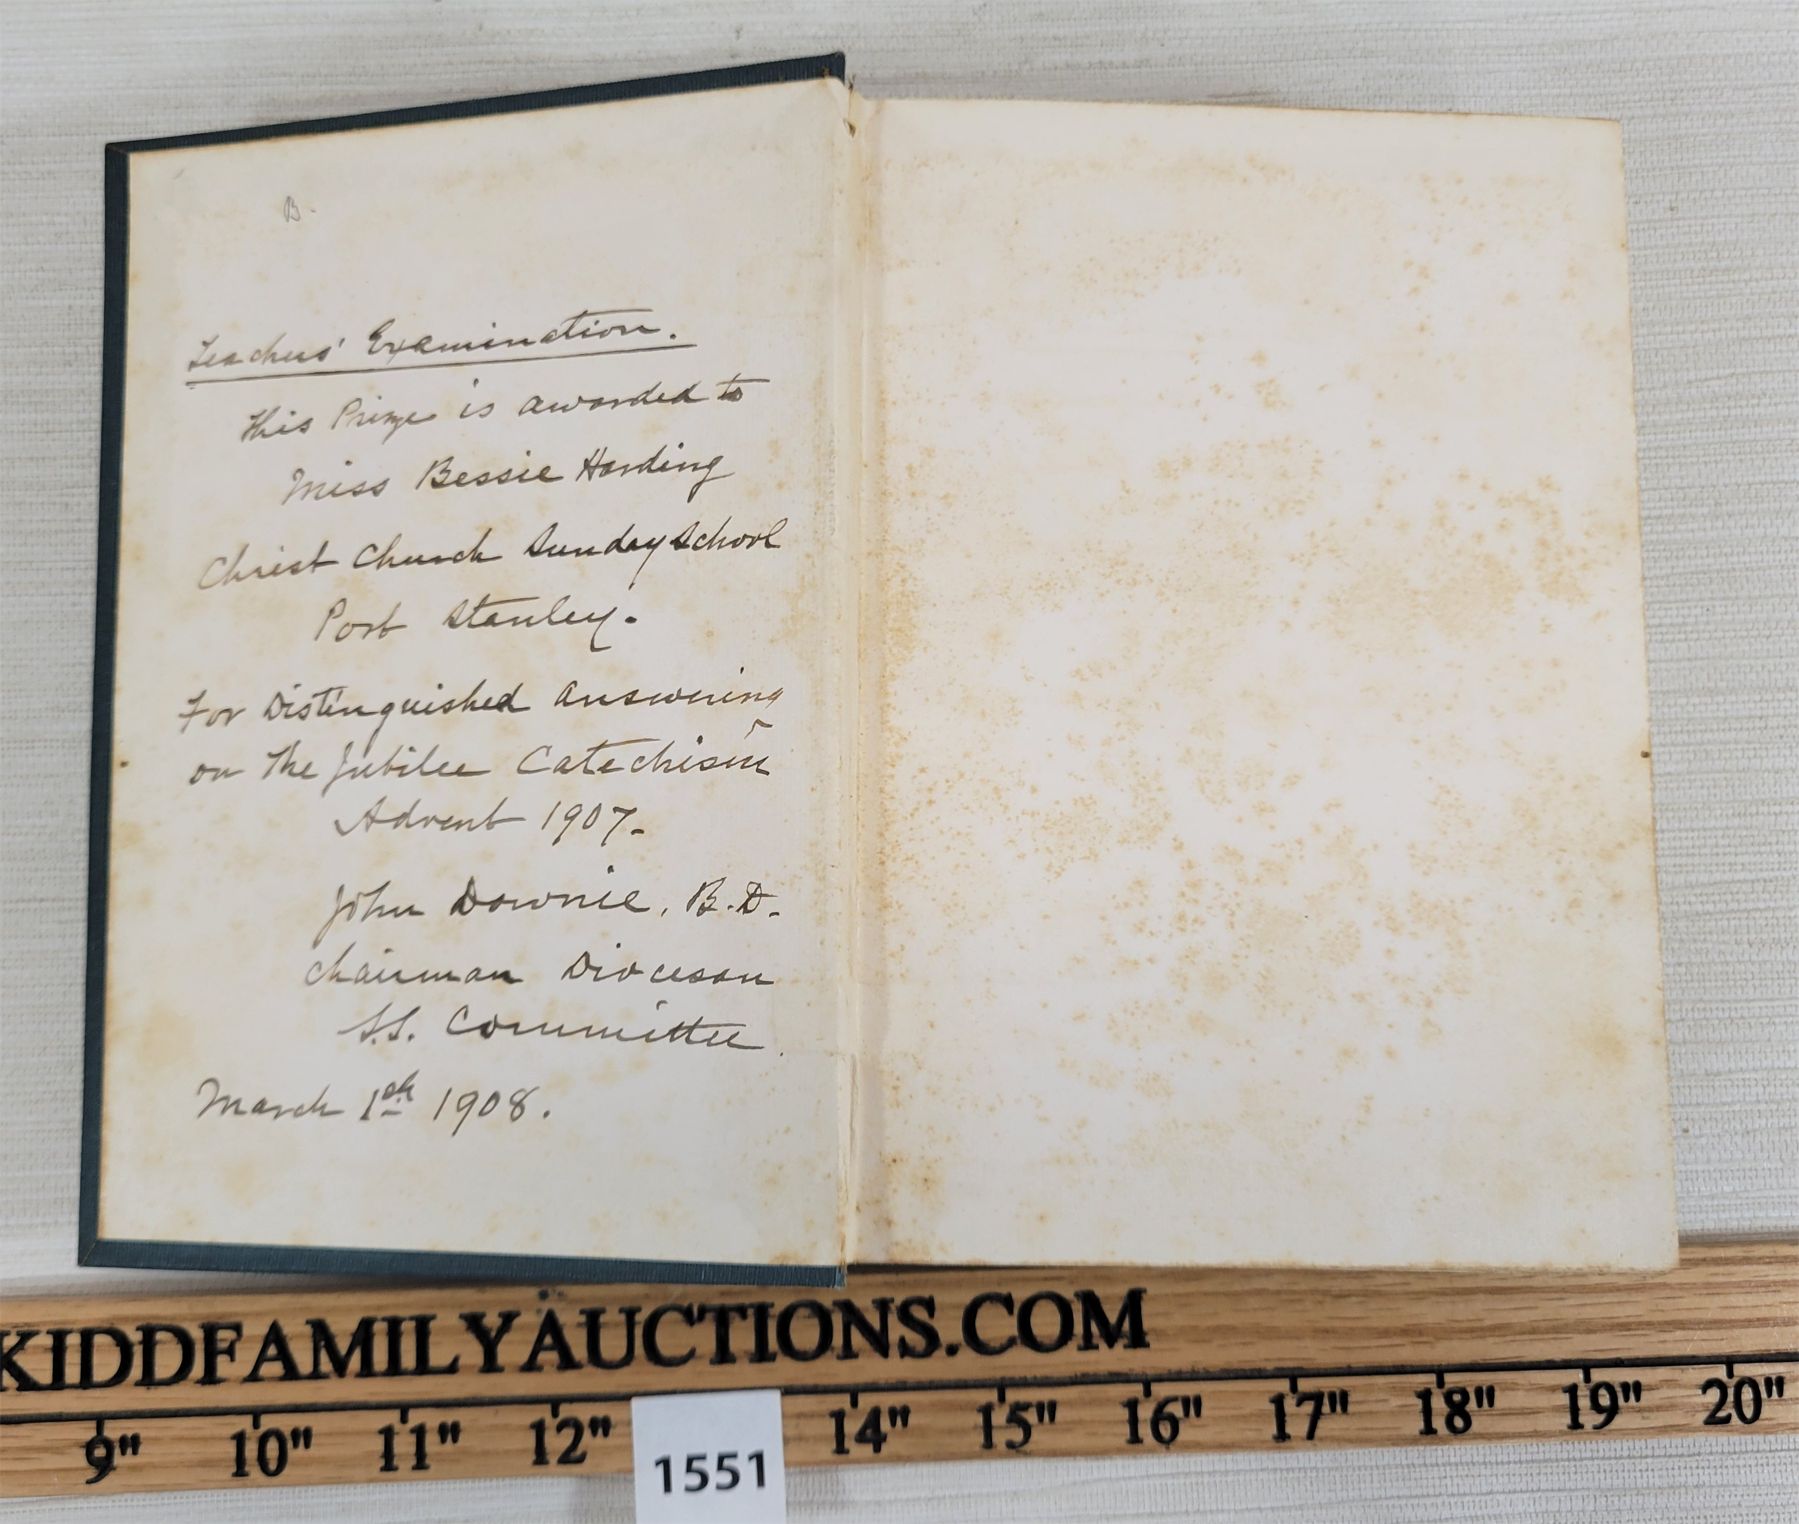 B.
Teachers' Examination.
This Prize is awarded to
Miss Bessie Harding
Christ Church Sunday School
Port Stanley.
For Distinguished Answering
on The Jubilee Catechism
Advent 1907.
John Downie, B.D.
Chairman Diocesan
S.S. Committee
March 1908.
KIDDFAMILYAUCTIONS.COM
9" 10" 11" 12" 14" 15" 16" 17" 18" 19" 20"
1551